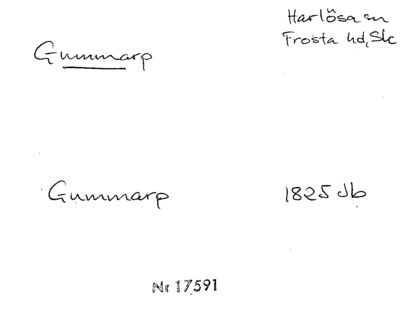 Harlösa sn
Gummarp
Frosta hd, Sk
Gummarp
1825 Jb
Nr 17591